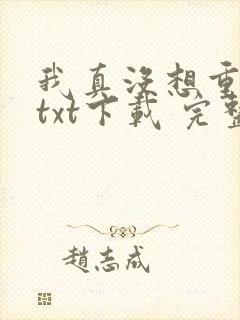 我真没想重
txt下載 完整
趙志成